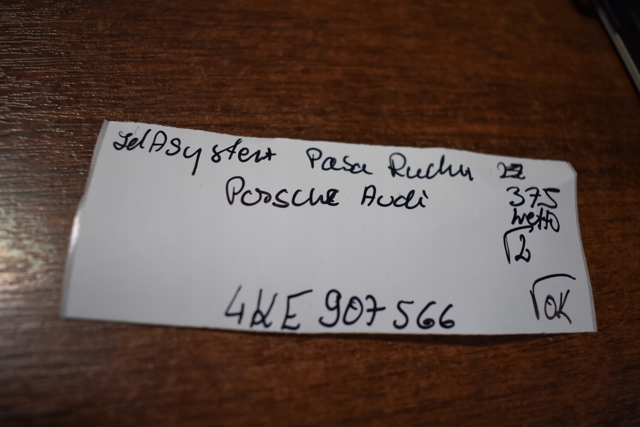 Asystent Pasa Ruchu
375
Porsche Audi
netto
√2
4KE 907 566
√OK